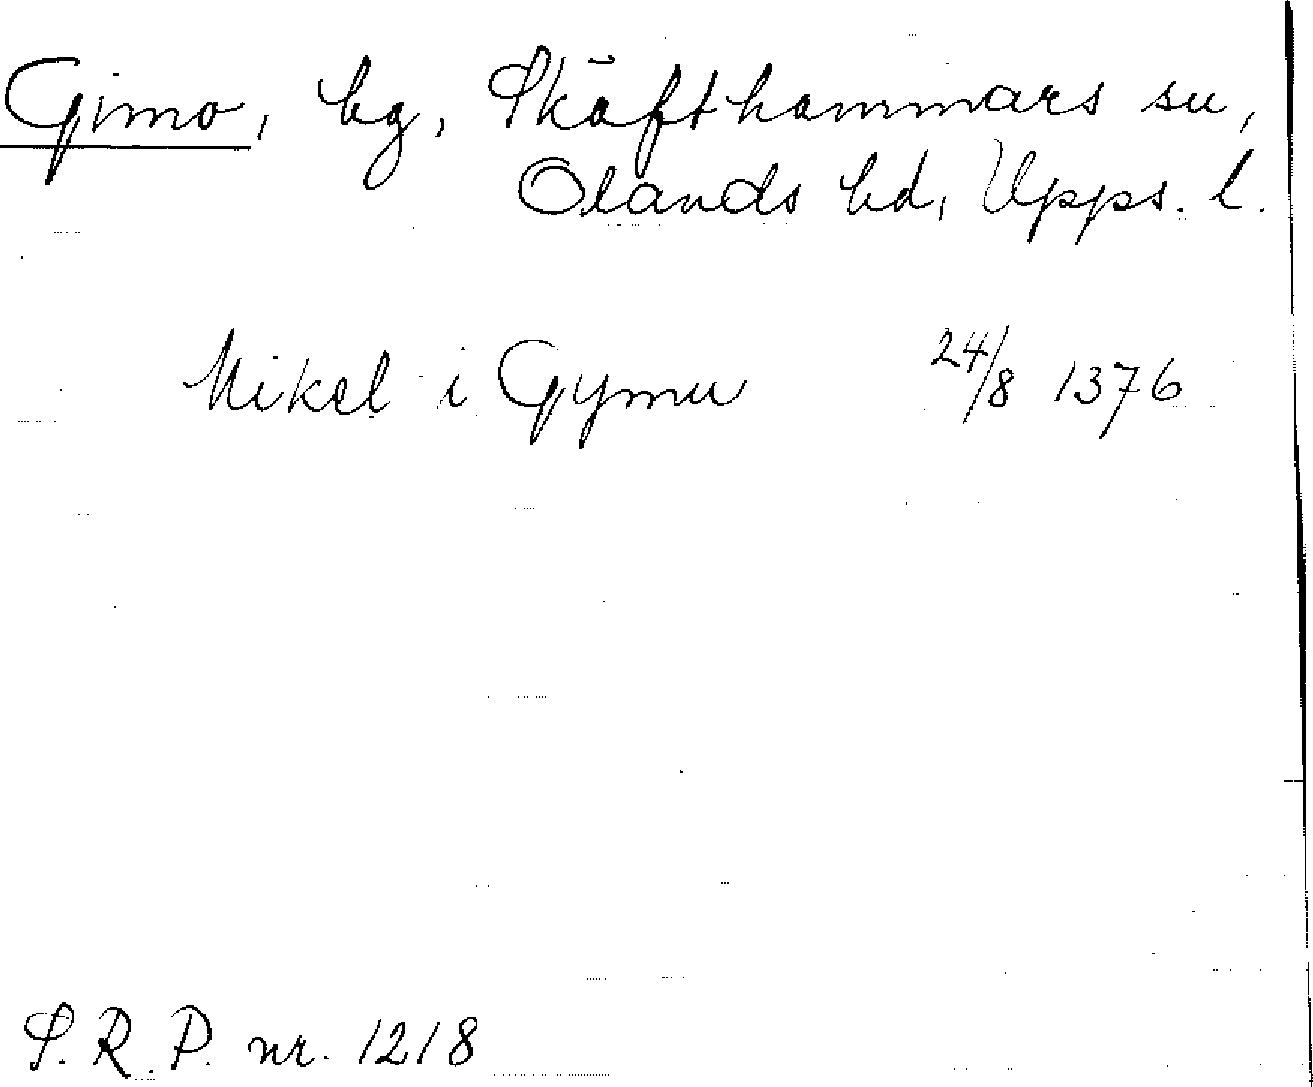 Gimo, by, Skäfthammars sn,
Olands hd, Upps. l.
Mikel i Gymu 24/8 1376
S. R. P. nr. 1218